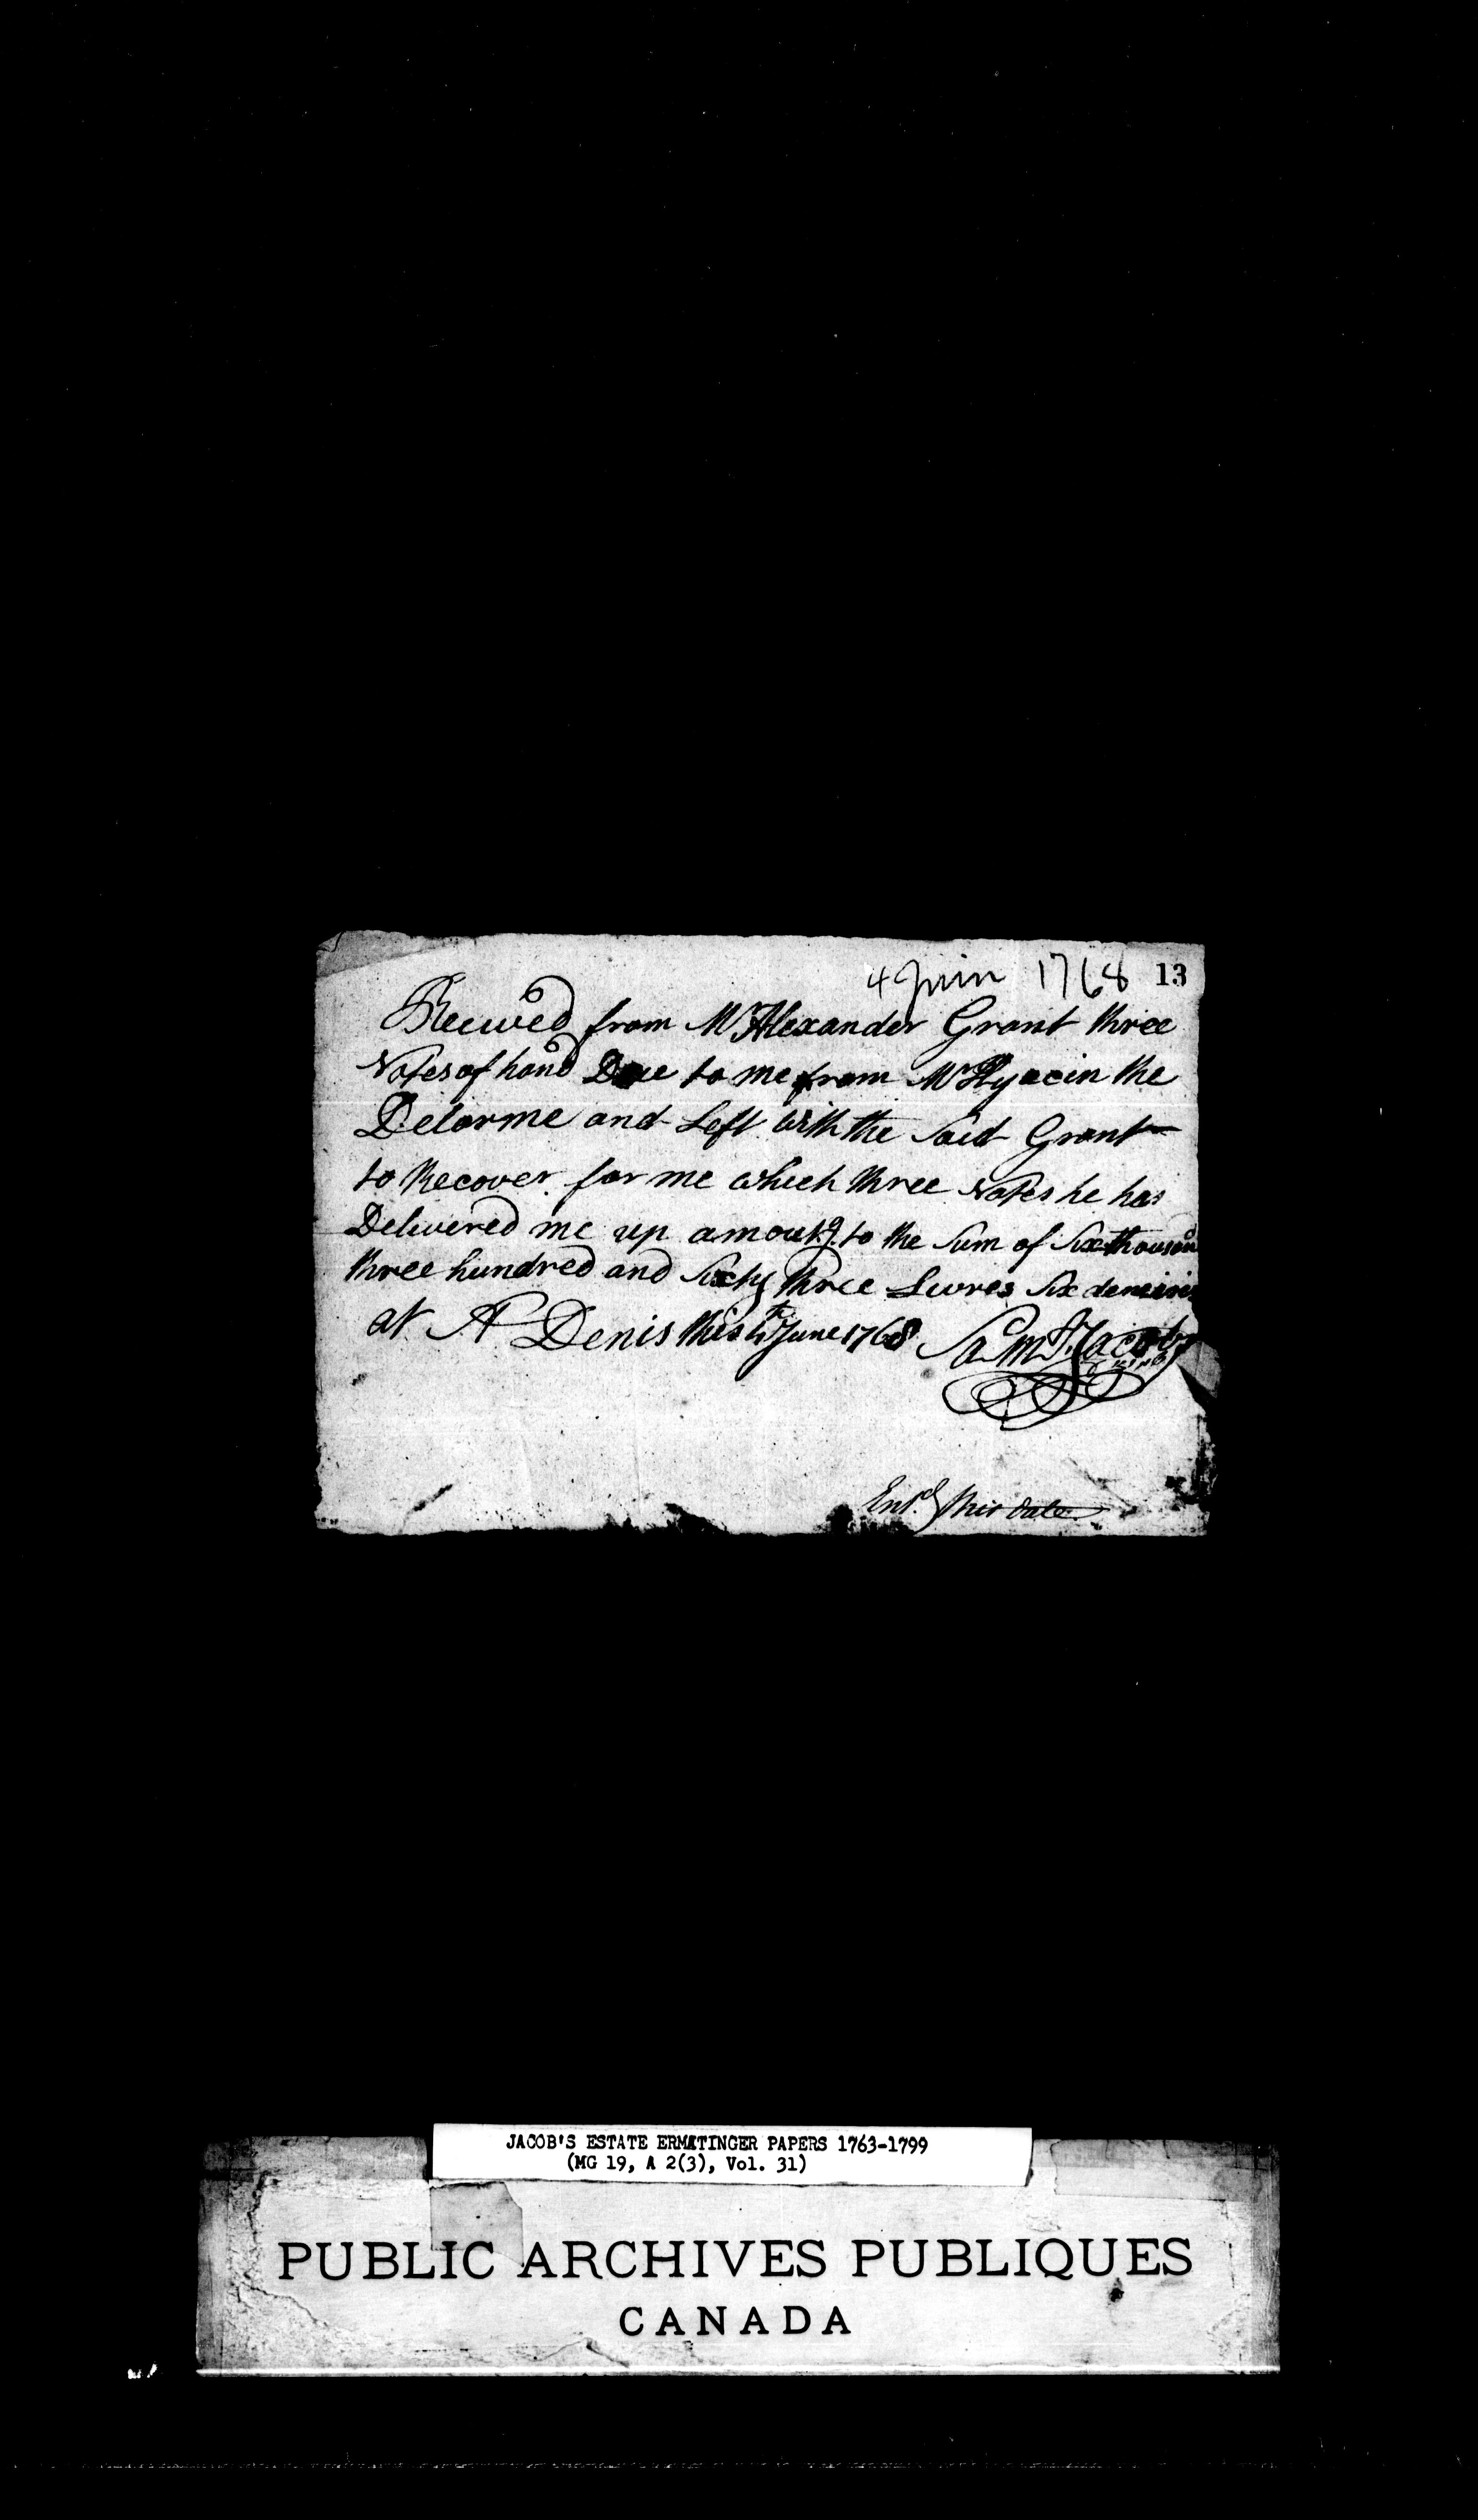 4 Juin 1768 13
Receivd from Mr Alexander Grant three
Notes of hand Due to me from Mr Hyacinthe
Delorme and Left with the Said Grant
to Recover for me which three Notes he has
Delivered me up amoutg. to the Sum of Six thousand
three hundred and Sixty three Livres Six deneirs
at St Denis this 4th June 1768 Saml. Jacobs
Entd. this date
JACOB'S ESTATE ERMATINGER PAPERS 1763-1799
(MG 19, A 2(3), Vol. 31)
PUBLIC ARCHIVES PUBLIQUES
CANADA